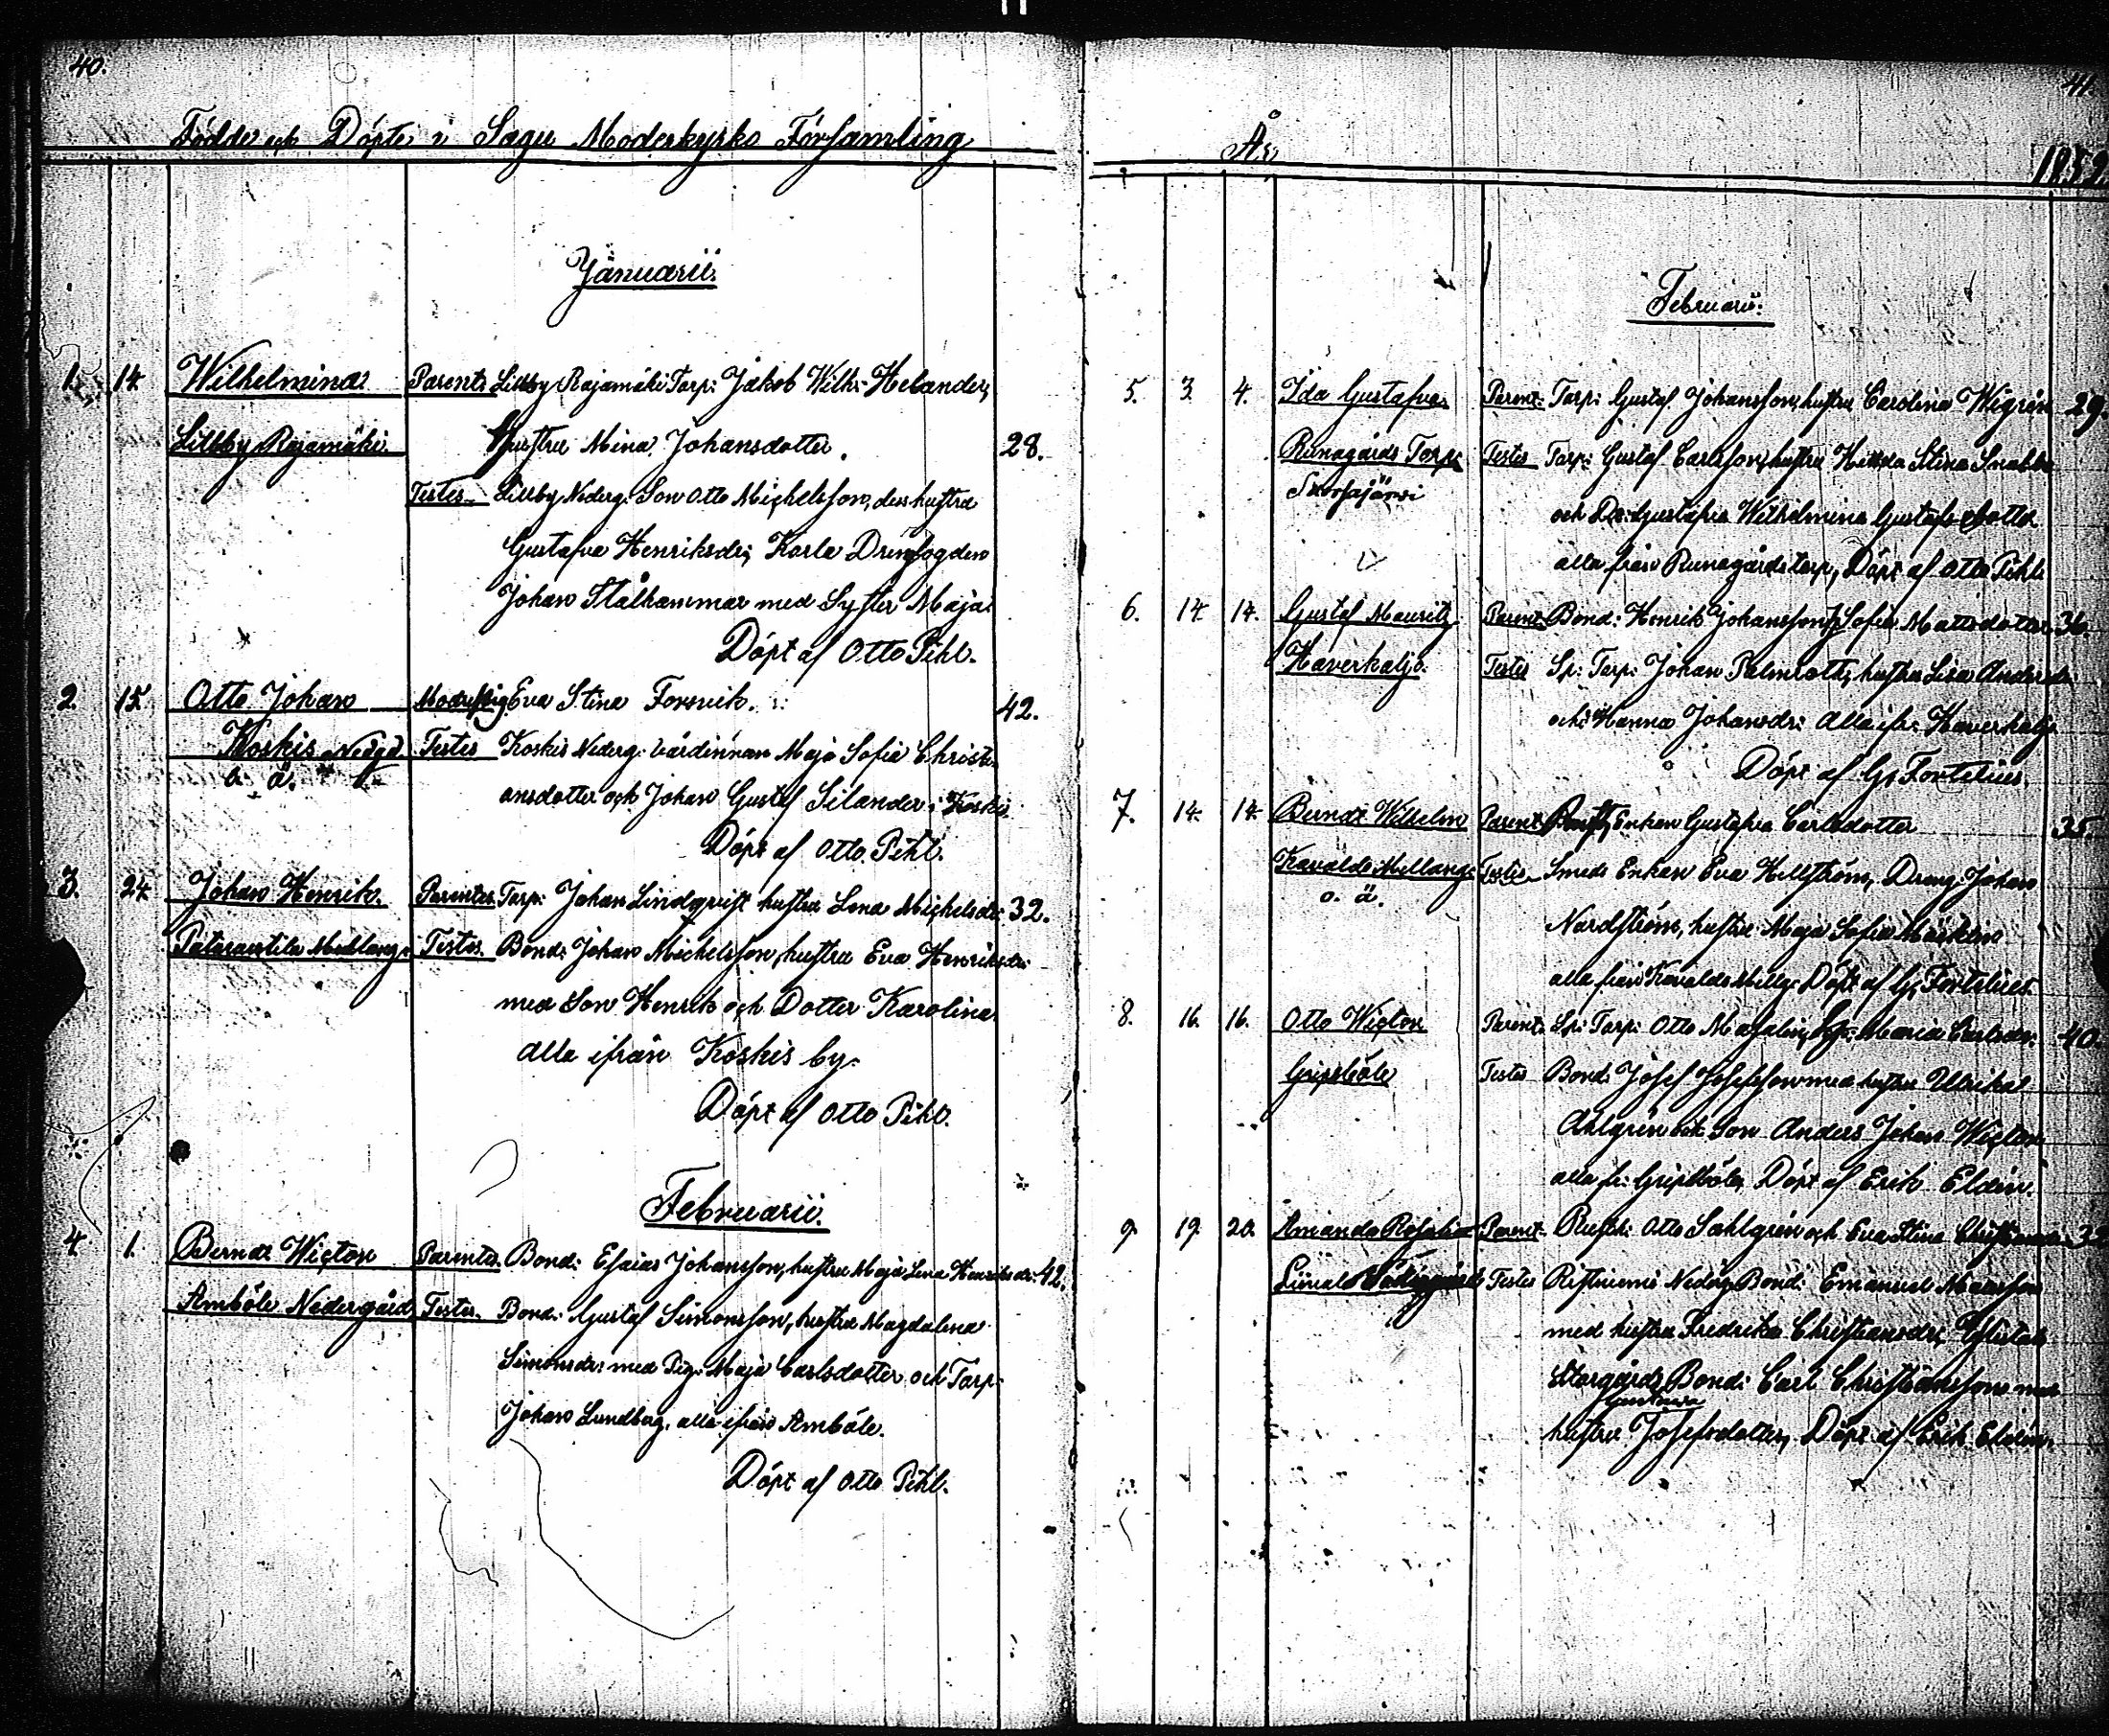 40.
Födde och Döpte i Sagu Moderkyrko Församling
Januarii.
1. 14. Wilhelmina Parents Lillby Rajamäki Torp: Jakob Wilh: Helander,
Lillby Rajamäki. hustru Mina Johansdotter. 28.
Testes Lillby Nederg: Son Otto Michelsson, dess hustru
Gustafva Henriksdr; Karla Drengfogden
Johan Stålhammar med Syster Maja.
Döpt af Otto Pihl.
2. 15. Otto Johan Eva Stina Forsvik. 42.
Koskis Nedgd. Testes Koskis Nederg: värdinnan Maja Sofia Christi-
o. ä. ansdotter och Johan Gustaf Silander i Koskis.
Döpt af Otto Pihl.
3. 24 Johan Henrik. Parentes Torp: Johan Lindqvist hustru Lena Michelsdr: 32.
Testes. Bond: Johan Michelsson, hustru Eva Henriksdr:
med Son Henrik och Dotter Karolina.
alla ifrån Koskis by.
Döpt af Otto Pihl.
Februarii.
4. 1. Bernd Wigton Parentes. Bond: Esaias Johansson, hustru Maja Lena Henriksdr: 42.
Ambóle Nedergård, Testes. Bond: Gustaf Simonsson, hustru Magdalena
Simonsdr: med Pig: Maja Carlsdotter och Torp:
Johan Lundberg, alla ifrån Ambóle.
Döpt af Otto Pihl.
41.
År 1852.
Februarii.
5. 3. 4. Ida Gustafva Parent: Torp: Gustaf Johansson, hustru Carolina Wigrén 29.
Runagårds Torp: Testes Torp: Gustaf Carlsson, hustru Stina Snabb
och Gustafva Wilhelmina Gustafsdotter
alla från Runagårds torp, Döpt af Otto Pihl
6. 14 14. Gustaf Mauritz Parent Bond: Henrik Johansson, Sofia Mattsdotter 36.
Haverkaljo. Testes Sp: Torp: Johan Palmroth, hustru Lisa Andersdr:
och Hanna Johansdr: alla ifr: Haverkaljo
Döpt af G. Fortelius.
7. 14. 14. Berndt Wilhelm Parent Enkan Gustafva Carlsdotter 35.
Kavalds Mellang: Testes Smeds Enkan Eva Hellström, Dreng: Johan
o. ä. Nordström, hustru Maja Sofia
alla från Kavalds Mellg: Döpt af G. Fortelius
8. 16. 16. Otto Wigton Parent Sp: Torp: Otto Maria Carlsdr: 40.
Gripsböle Testes Bond: Josef Josefsson med hustru Ulrika
Ahlgrén och Son Anders Johan Wigton,
alla fr: Gripsböle, Döpt af Erik Eldén.
9. 19. 20. Amanda Rosalia Parent Otto Sahlgrén och Eva Stina
Testes Ristniemi Nederg: Bond: Emanuel
med hustru Fredrika Christiansdr;
Storgårds Bond: Carl Christiansson med
hustru Josefsdotter, Döpt af Erik Eldén.